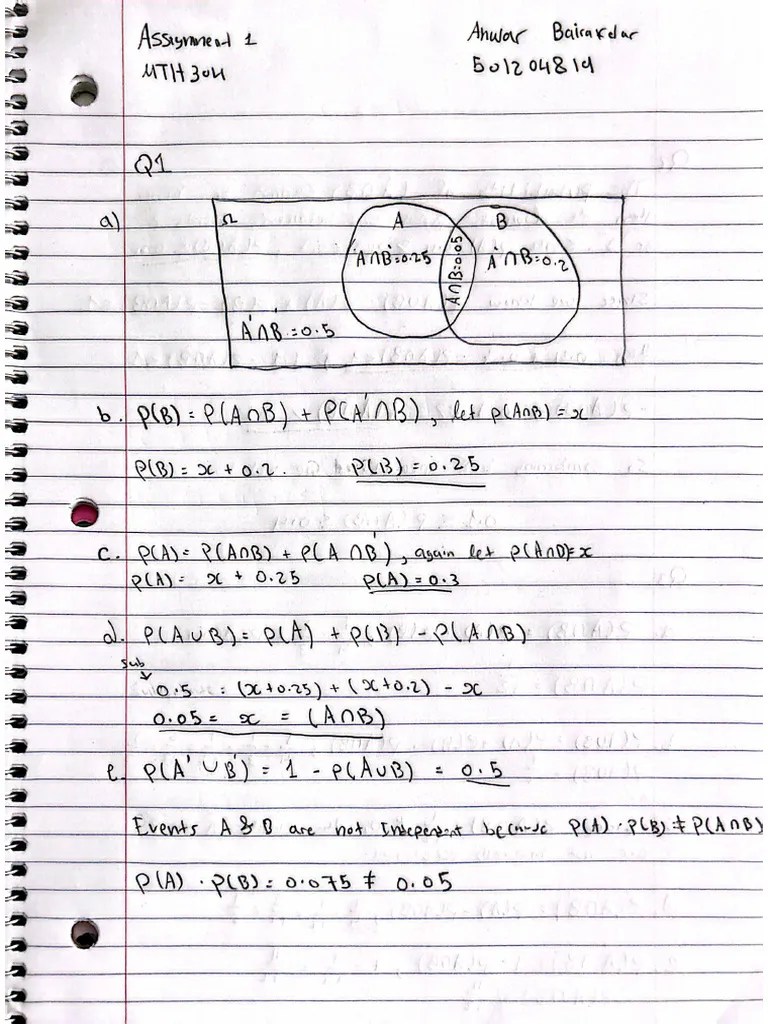 Assignment 1
MTH304
Anwar Bairakdar
501204819
Q1
a)
Ω
A
B
A∩B'=0.25
A∩B=0.05
A'∩B=0.2
A'∩B' = 0.5
b. P(B) = P(A∩B) + P(A'∩B), let P(A∩B) = x
P(B) = x + 0.2. P(B) = 0.25
c. P(A) = P(A∩B) + P(A∩B'), again let P(A∩B)=x
P(A) = x + 0.25 P(A) = 0.3
d. P(A∪B) = P(A) + P(B) - P(A∩B)
sub
0.5 = (x+0.25) + (x+0.2) - x
0.05 = x = (A∩B)
e. P(A' ∪ B') = 1 - P(A∪B) = 0.5
Events A & B are not Independent because P(A) · P(B) ≠ P(A∩B)
P(A) · P(B) = 0.075 ≠ 0.05